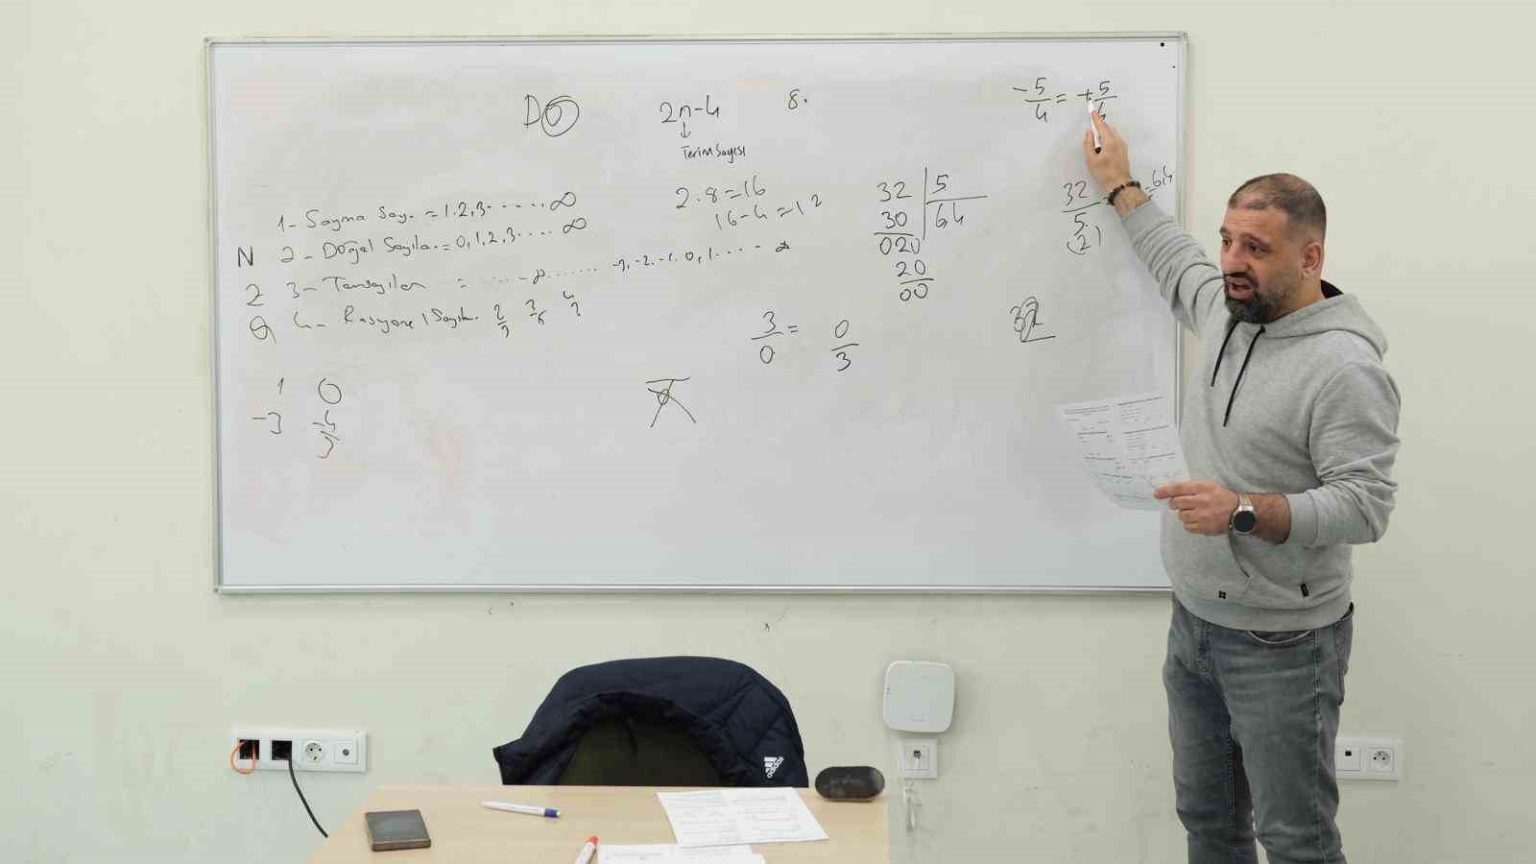 D0
2n-4
↓
Terim Sayısı
8.
-5/4 = +5/4
1- Sayma Say. = 1,2,3.....∞
N 2- Doğal Sayıla. = 0,1,2,3....∞
Z 3- Tamsayılar = ...-∞...... -3,-2,-1,0,1.... ∞
Q 4- Rasyonel Sayıla. 2/3 3/5 4/2
2.8=16
16-4=12
32 | 5
30 | 64
020
20
00
32/5 =64
(2)
3/0 = 0/3
32
1 0
-3 -4/3
adidas